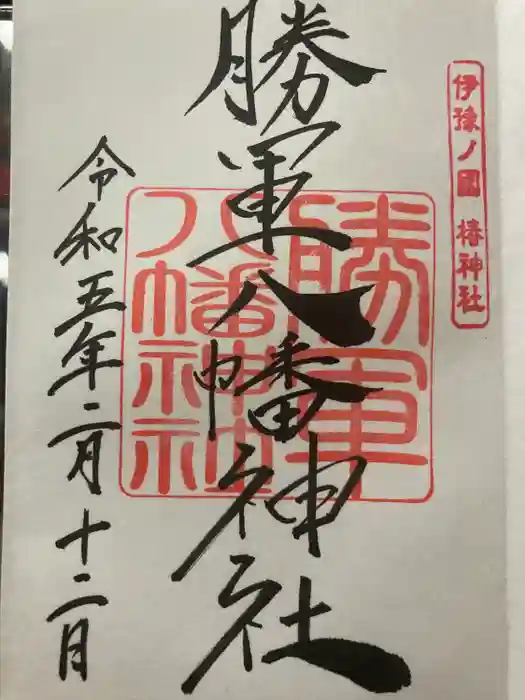 伊豫ノ國 椿神社
勝軍八幡神社
勝軍八幡神社
令和五年二月十二日